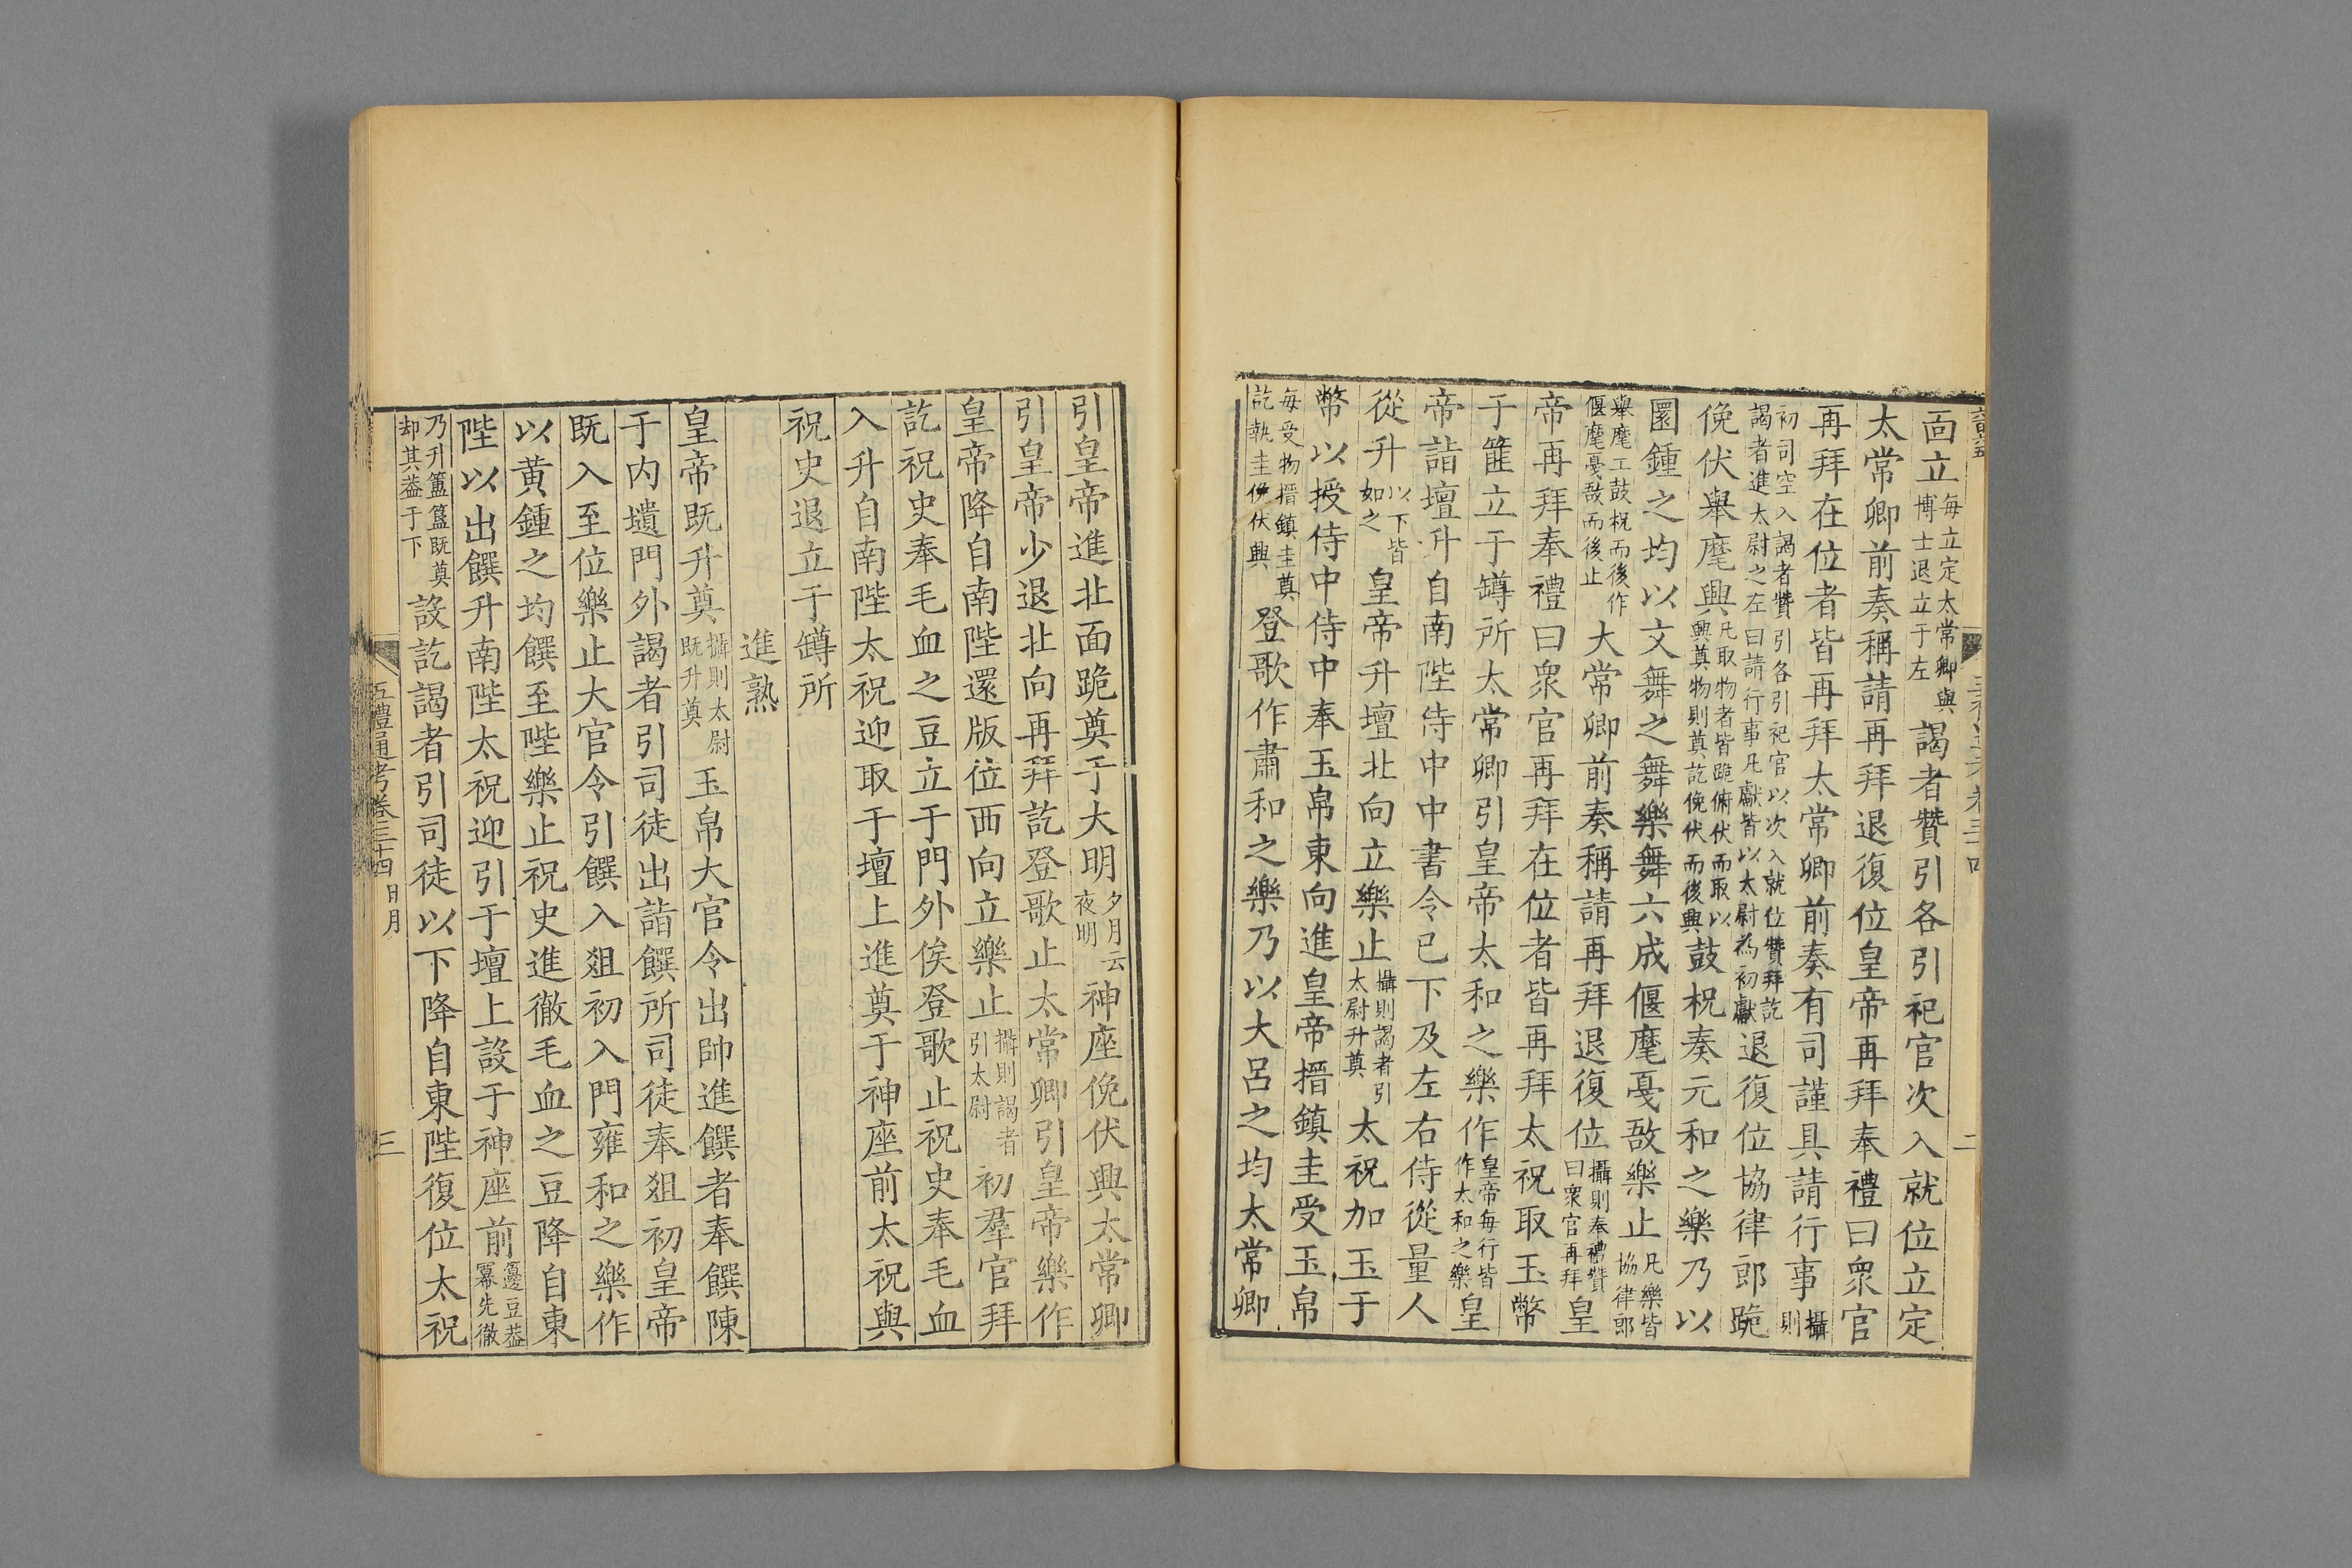 面立每立定太常卿與博士退立于左謁者贊引各引祀官次入就位立定
太常卿前奏稱請再拜退復位皇帝再拜奉禮曰衆官
再拜在位者皆再拜太常卿前奏有司謹具請行事攝則
初司空入謁者贊引各引祀官以次入就位贊拜訖謁者進太尉之左曰請行事凡獻皆以太尉為初獻退復位協律郎跪
俛伏舉麾興凡取物者皆跪俯伏而取以興奠物則奠訖俛伏而後興鼓柷奏元和之樂乃以
圜鍾之均以文舞之舞樂舞六成偃麾戞敔樂止凡樂皆協律郎
舉麾工鼓柷而後作偃麾戞敔而後止大常卿前奏稱請再拜退復位攝則奉禮贊曰衆官再拜皇
帝再拜奉禮曰衆官再拜在位者皆再拜太祝取玉幣
于篚立于罇所太常卿引皇帝太和之樂作皇帝每行皆作太和之樂皇
帝詣壇升自南陛侍中中書令已下及左右侍從量人
從升以下皆如之皇帝升壇北向立樂止攝則謁者引太尉升奠太祝加玉于
幣以授侍中侍中奉玉帛東向進皇帝搢鎮圭受玉帛
每受物搢鎮圭奠訖執圭俛伏興登歌作肅和之樂乃以大呂之均太常卿
引皇帝進北面跪奠于大明夕月云夜明神座俛伏興太常卿
引皇帝少退北向再拜訖登歌止太常卿引皇帝樂作
皇帝降自南陛還版位西向立樂止攝則謁者引太尉初羣官拜
訖祝史奉毛血之豆立于門外俟登歌止祝史奉毛血
入升自南陛太祝迎取于壇上進奠于神座前太祝與
祝史退立于罇所
進熟
皇帝既升奠攝則太尉既升奠玉帛大官令出帥進饌者奉饌陳
于內壝門外謁者引司徒出詣饌所司徒奉俎初皇帝
既入至位樂止大官令引饌入俎初入門雍和之樂作
以黃鍾之均饌至陛樂止祝史進徹毛血之豆降自東
陛以出饌升南陛太祝迎引于壇上設于神座前籩豆葢冪先徹
乃升簠簋既奠却其葢于下設訖謁者引司徒以下降自東陛復位太祝
五禮通考卷三十四 日月 三